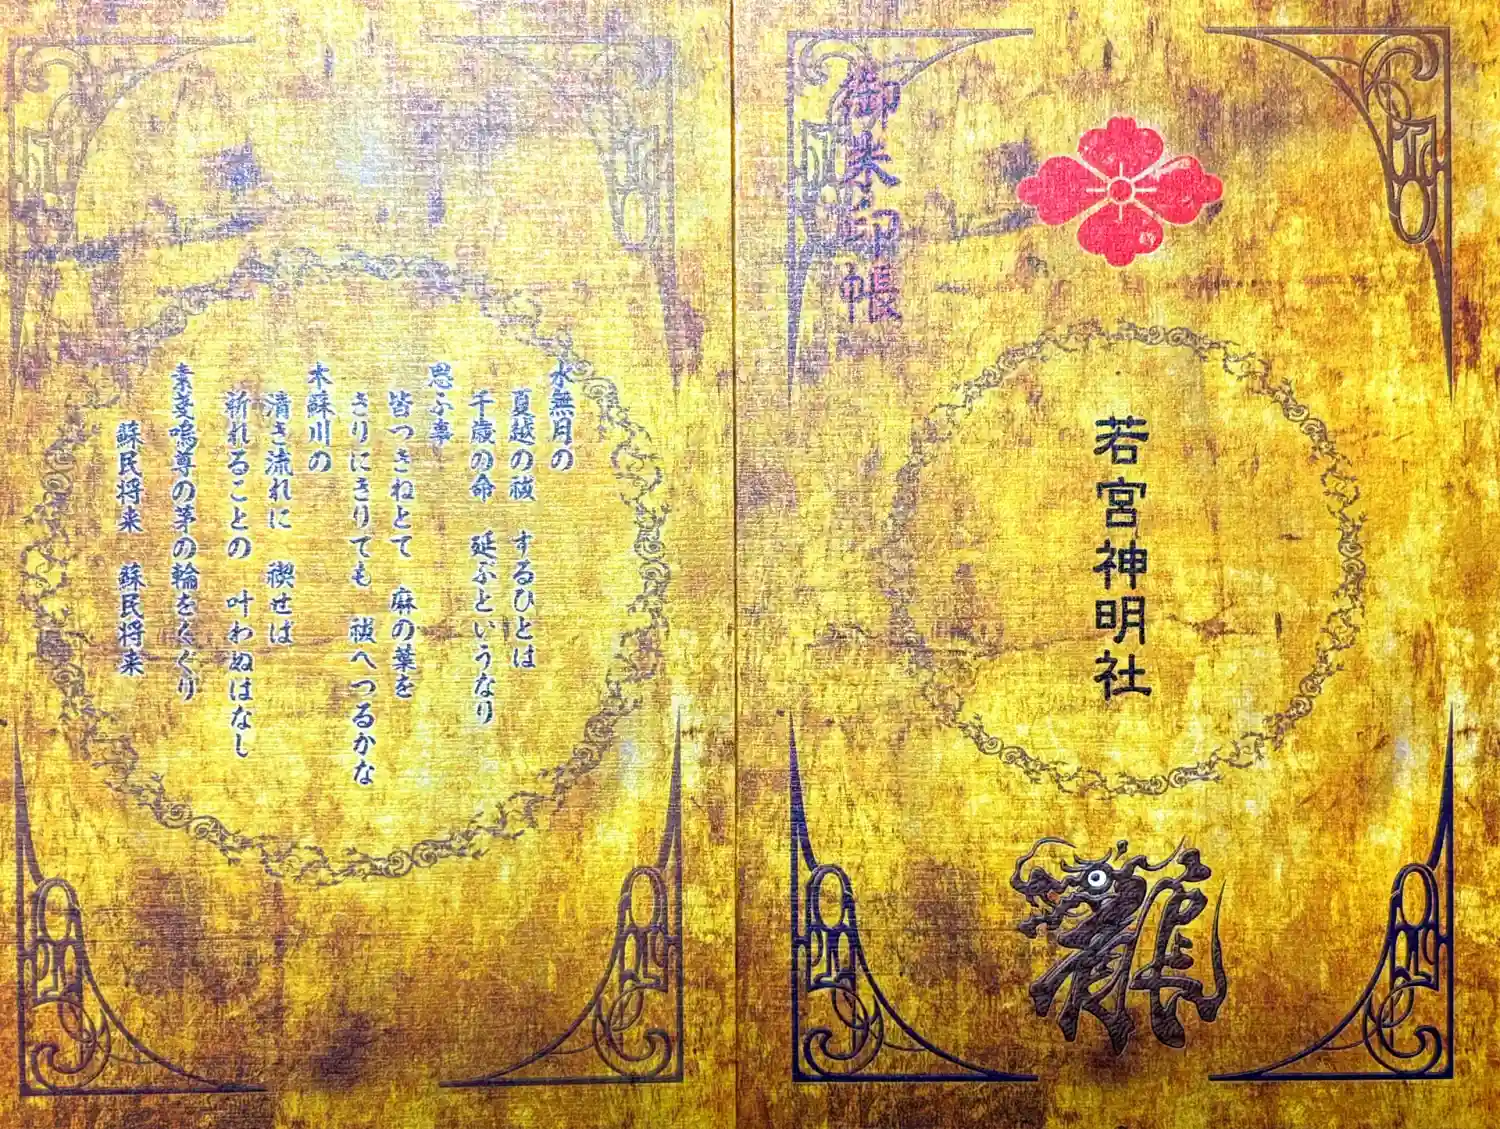 御朱印帳
若宮神明社
龍
水無月の
夏越の祓 するひとは
千歳の命 延ぶというなり
思ふ事
皆つきねとて 麻の葉を
きりにきりても 祓へつるかな
木蘇川の
清き流れに 禊せは
祈れることの 叶わぬはなし
素戔嗚尊の茅の輪をくぐり
蘇民将来 蘇民将来